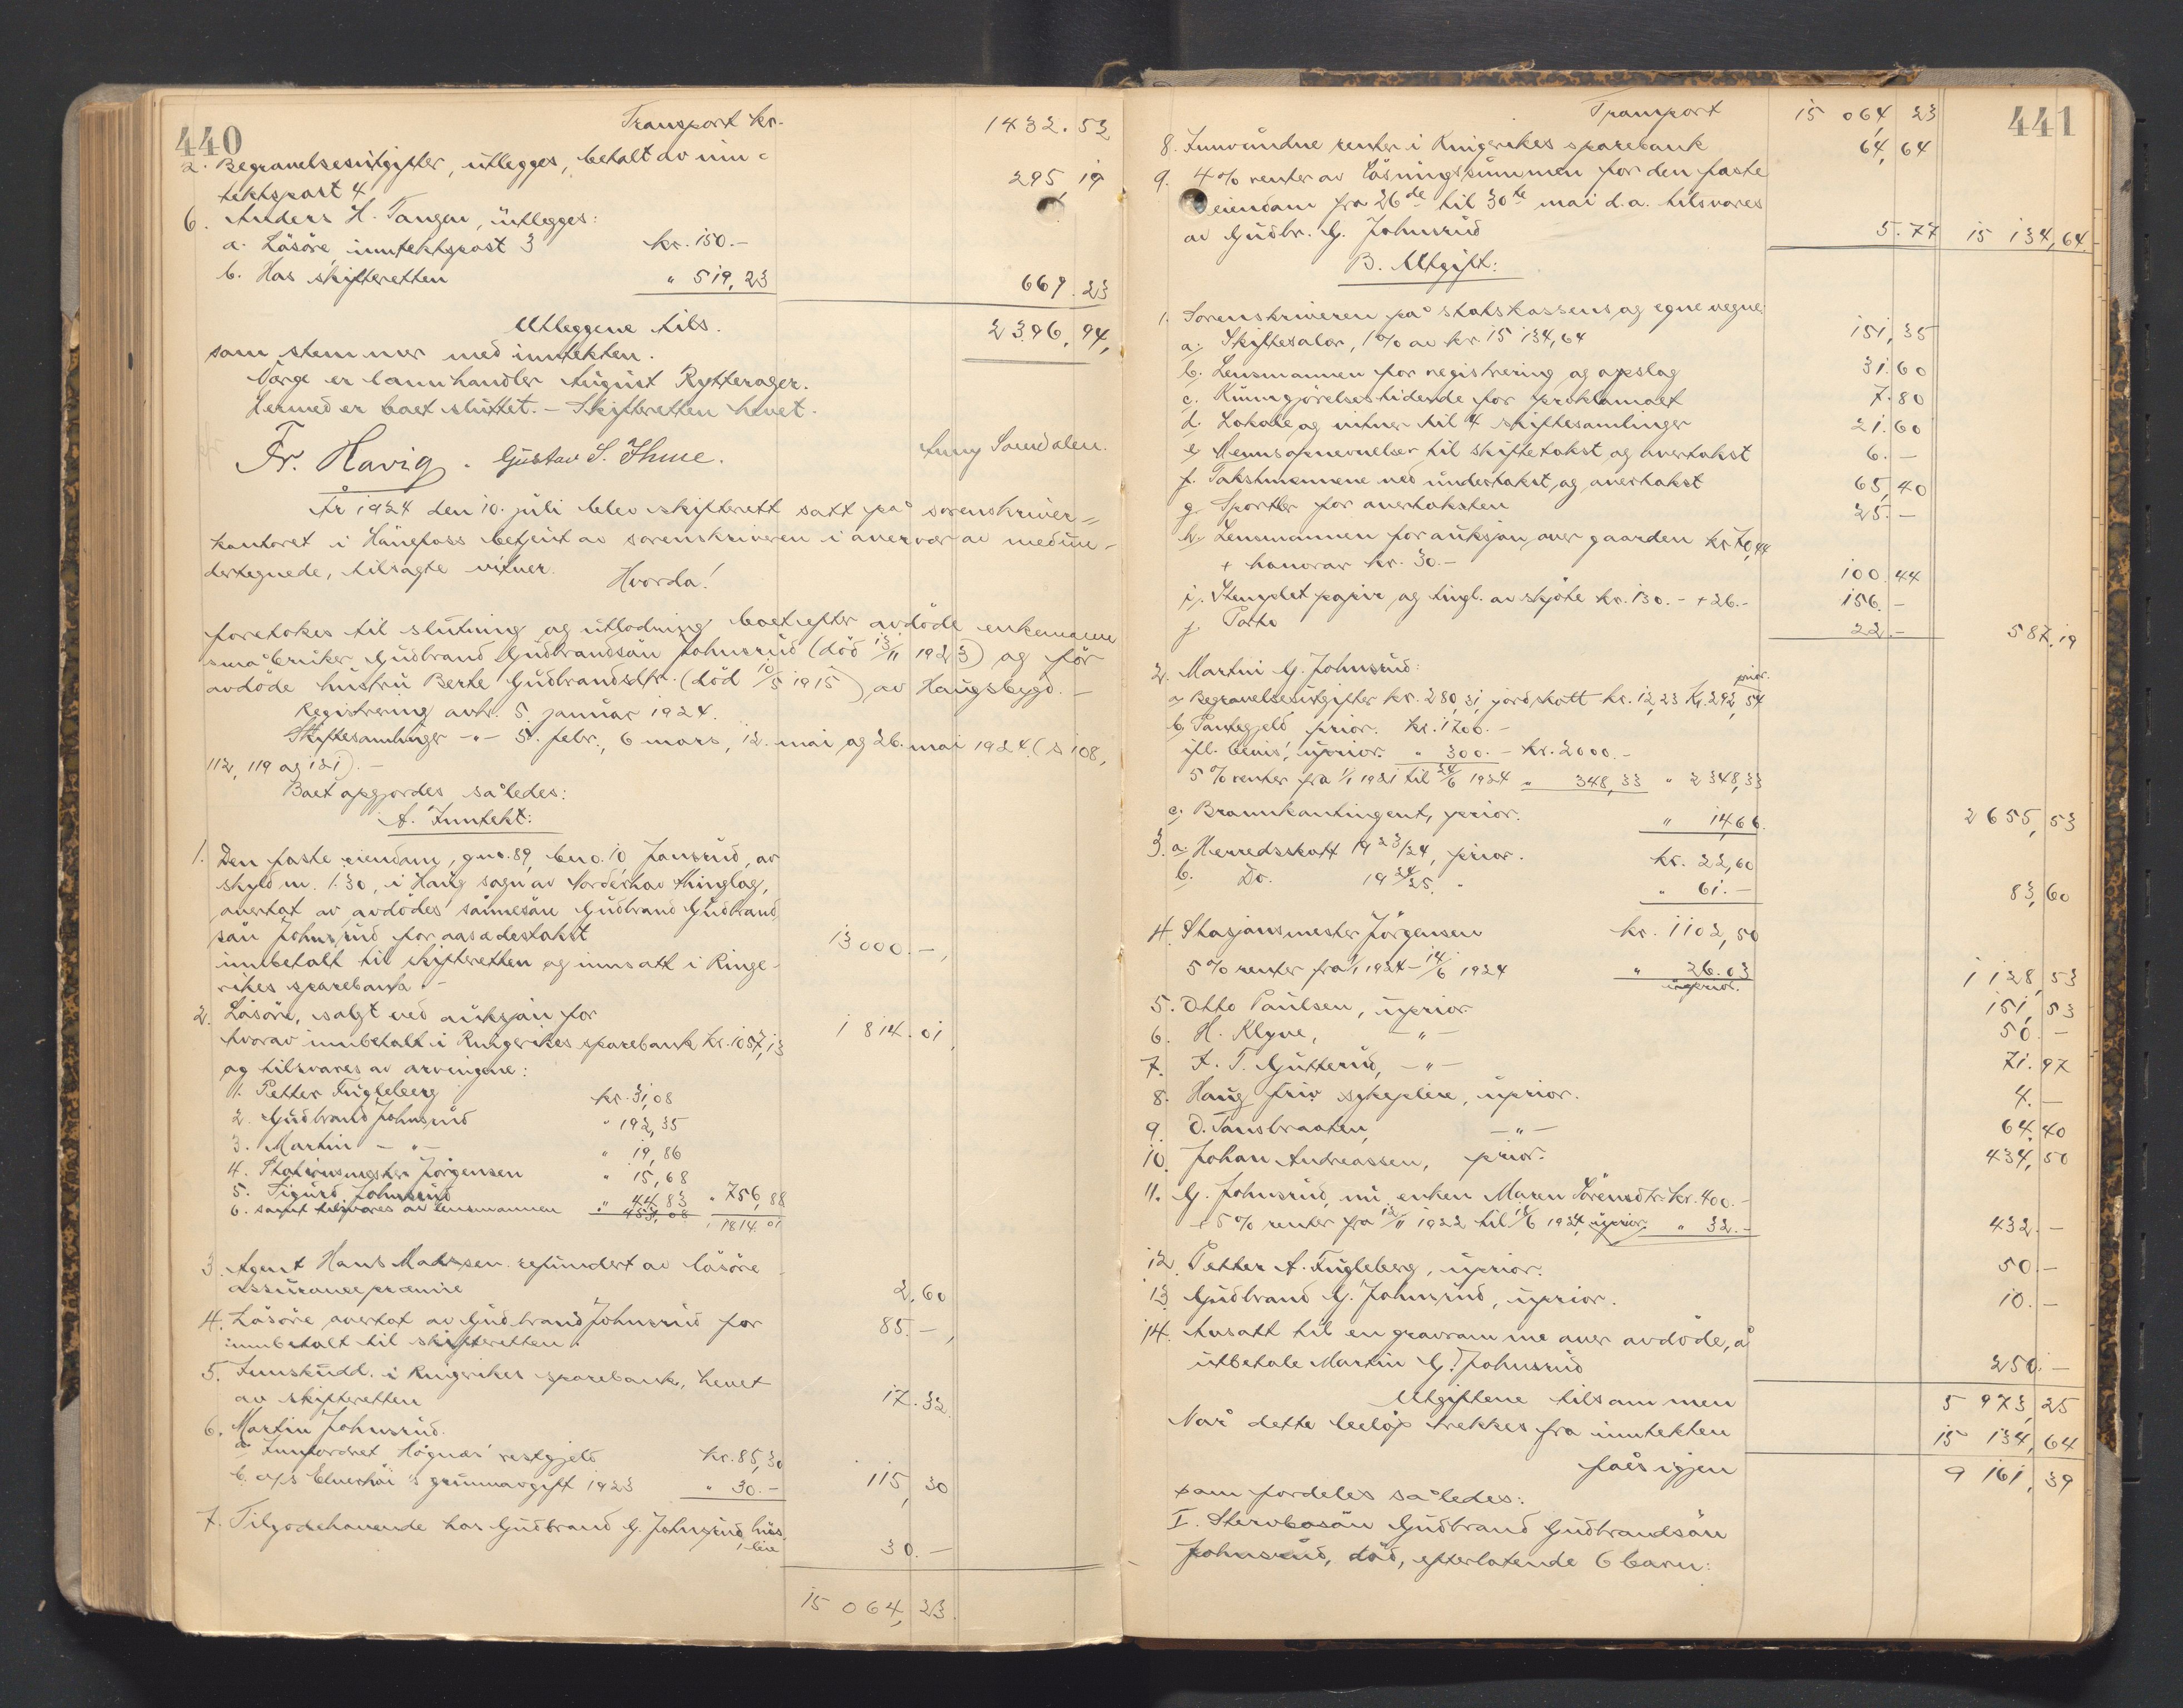 440
Transport kr. 1432.53
2. Begravelsesutgifter, utlegges, betalt av inn-
tektspost 4 295,19
6. Anders H. Tangen, utlegges:
a. Løsøre, inntektspost 3 kr. 150.-
b. Hos skifteretten " 519,23 669.23
Utleggene tils. 2396,94,
som stemmer med inntekten.
Verge er lannhandler August Rytterager.
Hermed er boet sluttet. – Skifteretten hevet.
Fr. Havig. Gustav S. Thue. Anny Sørdalen.
År 1924 den 10. juli blev skifterett satt på sorenskriver=
kontoret i Hønefoss betjent av sorenskriveren i overvær av medun-
dertegnede, tilsagte vitner. Hvorda!
foretokes til slutning og utlodning boet efter avdøde enkemann
småbruker Gudbrand Gudbrandsøn Johnsrud (død 13/11 1923) og før
avdøde hustru Berte Gudbrandsdtr. (død 10/5 1915), av Haugsbygd. –
Registrering avh. 5. januar 1924.
Skiftesamlinger -"- 5. febr., 6 mars, 12. mai og 26. mai 1924 (s 108,
112, 119 og 121). –
Boet opgjordes således:
A. Inntekt:
1. Den faste eiendom, gno. 89, bno. 10 Jonsrud, av
skyld m. 1.30, i Haug sogn av Norderhov thinglag,
overtat av avdødes sønnesøn Gudbrand Gudbrand
søn Johnsrud for aasædestakst 13000.-,
innbetalt til skifteretten og innsatt i Ringe-
rikes sparebank. –
2. Løsøre, solgt ved auksjon for 1814.01,
hvorav innbetalt i Ringerikes sparebank kr. 1057,13
og tilsvares av arvingene:
1. Petter Fugleberg kr. 31,08
2. Gudbrand Johnsrud " 192,35
3. Martin - " - " 19,86
4. Stationsmester Jørgensen " 15,68
5. Sigurd Johnsrud " 44,83 " 756,88
6. samt tilsvares av lensmannen " 453,08 1814.01
3. Agent Hans Madssen refundert av løsøre
assurancepræmie 2,60
4. Løsøre overtat av Gudbrand Johnsrud for 85.-,
innbetalt til skifteretten.
5. Innskudd i Ringerikes sparebank, hevet
av skifteretten 17.32
6. Martin Johnsrud.
a. Innfordret Høgnæs' restgjeld kr. 85,30
b. o/s Elverhøi's grunnavgift 1923 " 30.- 115,30
7. Tilgodehavende hos Gudbrand G. Johnsrud, hus-
leie 30.-
15064,23.
441
Transport 15064,23
8. Innvundne renter i Ringerikes sparebank 64,64
9. 4% renter av løsningssummen for den faste
eiendom fra 26de til 30te mai d.a. tilsvares
av Gudbr. G. Johnsrud 5.77 15134,64
B. Utgift:
1. Sorenskriveren på statskassens og egne vegne:
a. Skiftesalær, 1% av kr. 15134,64 151,35
b. Lensmannen for registrering og opslag 31.60
c. Kunngjørelsestidende for proklamaet 7.80
d. Lokale og vitner til 4 skiftesamlinger 21.60
e. Mennsopnevnelser til skiftetakst og overtakst 6.-
f. Takstmennene ved undertakst og overtakst 65,40
g. Sportler for overtaksten 25.-
h. Lensmannen for auksjon over gaarden kr. 70,44
+ honorar kr. 30.- 100.44
i. Stemplet papir og tingl. av skjøte kr. 130.- + 26.- 156.-
j. Porto 22.- 587.19
2. Martin G. Johnsrud: prior.
a. Begravelsesutgifter kr. 280,31, jordskatt kr. 12,23 kr. 292,54
b. Pantegjeld prior. kr. 1700.-
ifl. bevis, uprior. " 300.- kr. 2000.-
5% renter fra 1/1 1921 til 24/6 1924 " 348,33 " 2348,33
c. Brannkontingent, prior. " 14,66. 2655,53
3. a. Herredsskatt 1923/24, prior. kr. 22,60
b. Do. 1924/25. " " 61.- 83,60
4. Stasjonsmester Jørgensen kr. 1102,50
5% renter fra 1/1 1924 – 14/6 1924 " 26.03 1128,53
uprior.
5. Otto Paulsen, uprior. 151,53
6. H. Klyve, " 50.-
7. A. T. Gutterud, -"- 71.97
8. Haug friv. sykepleie, uprior. 4.-
9. O. Tansbraaten, -"- 64.40
10. Johan Andreassen, prior. 434,50
11. G. Johnsrud, nu enken Maren Sørensdtr. kr. 400.-
+ 5% renter fra 12/11 1922 til 12/6 1924, uprior. " 32.- 432.-
12. Petter A. Fugleberg, uprior. 50.-
13. Gudbrand G. Johnsrud, uprior. 10.-
14. Avsatt til en gravramme over avdøde, å
utbetale Martin G. Johnsrud 250.-
Utgiftene tilsammen 5973,25
Når dette beløp trekkes fra inntekten 15134,64
fåes igjen 9161,39
som fordeles således:
I. Stervbosøn Gudbrand Gudbrandsøn
Johnsrud, død, efterlatende 6 barn: